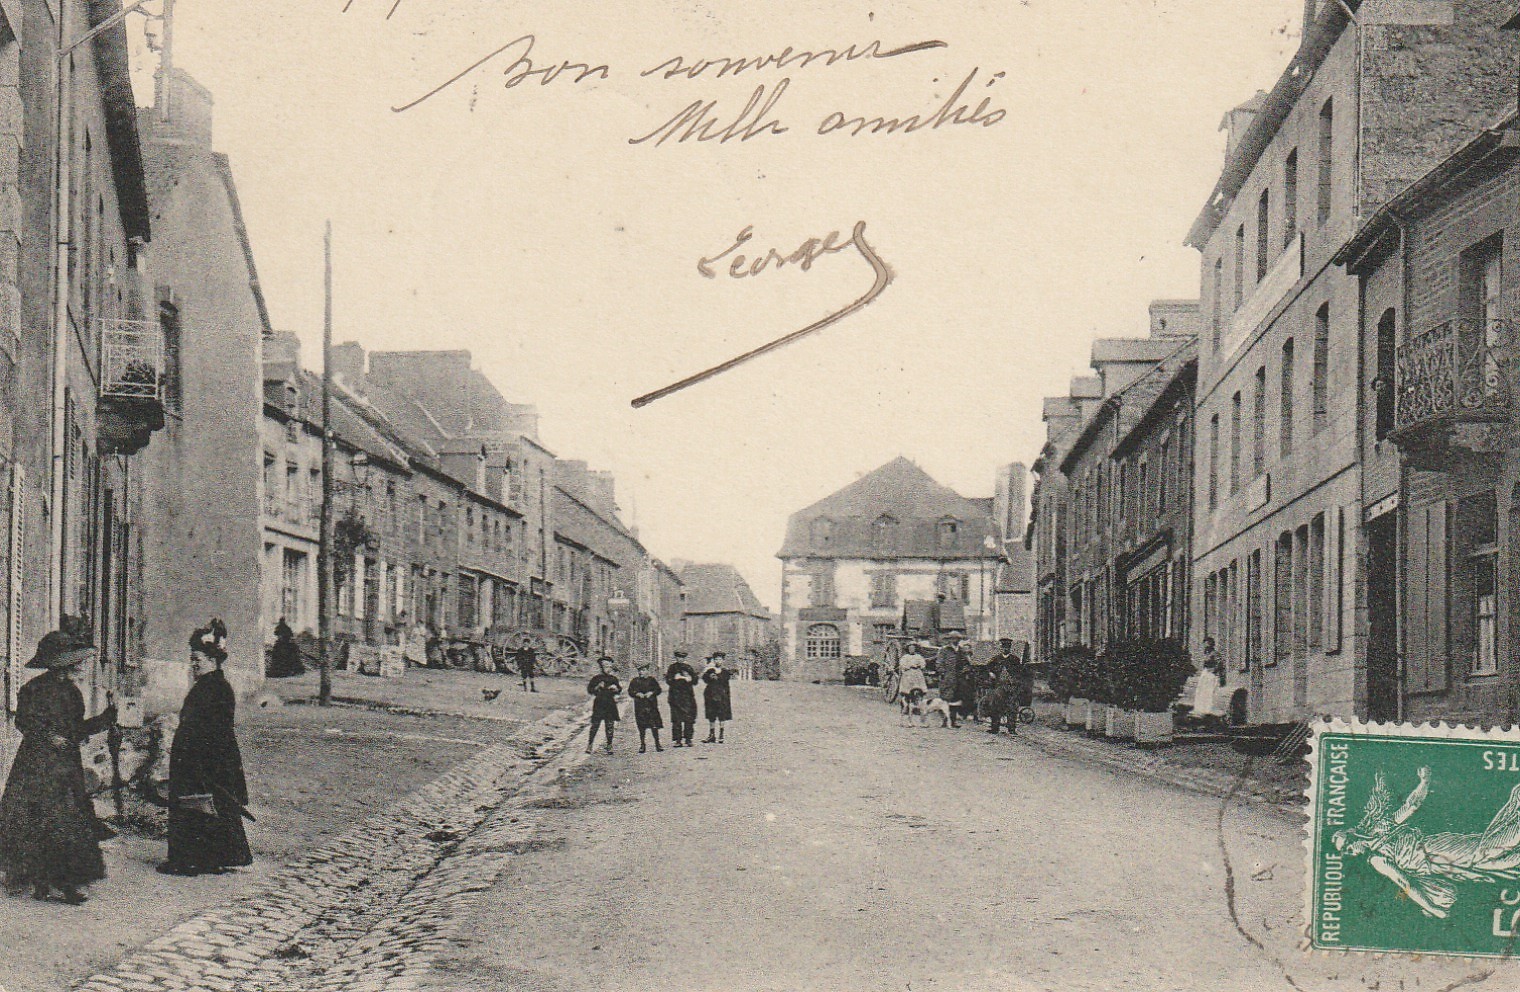 Bon souvenir
Mille amitiés
Georges
REPUBLIQUE FRANÇAISE
5c